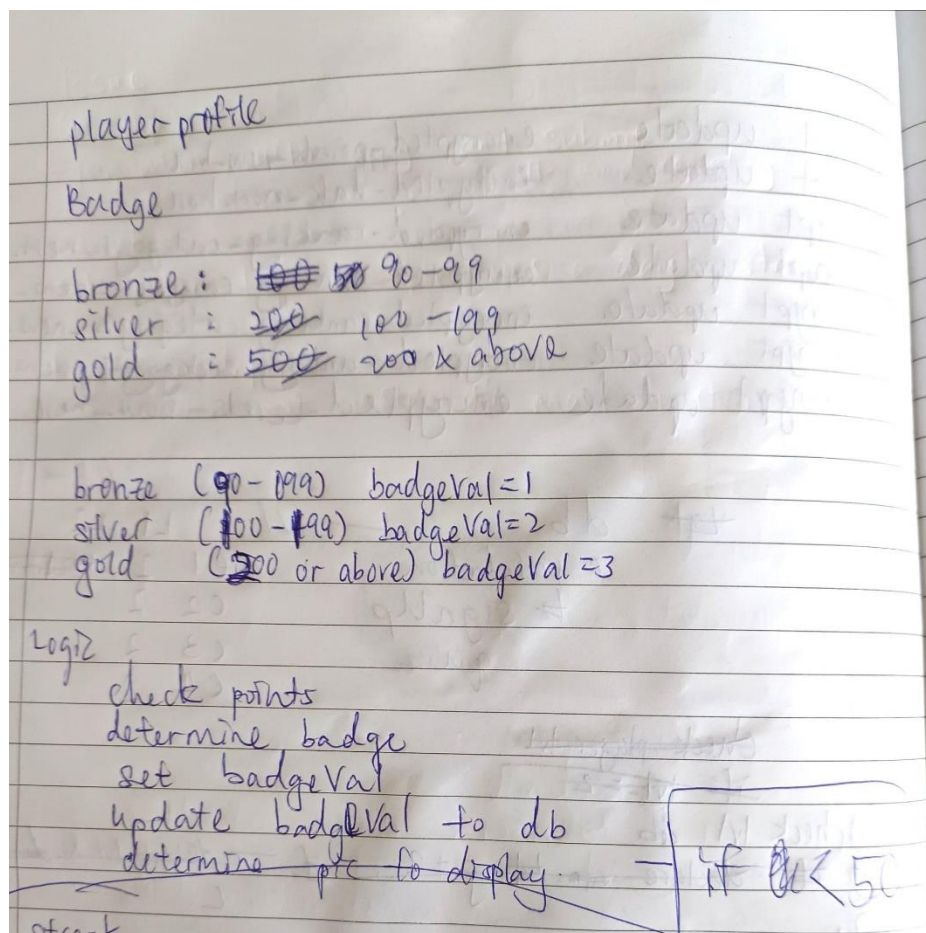 player profile
Badge
bronze : 100 50 90-99
silver : 200 100-199
gold : 500 200 & above
bronze (90-099) badgeVal=1
silver (100-199) badgeVal=2
gold (200 or above) badgeVal=3
Logic
check points
determine badge
set badgeVal
update badgeVal to db
determine pic to display.
if < 50